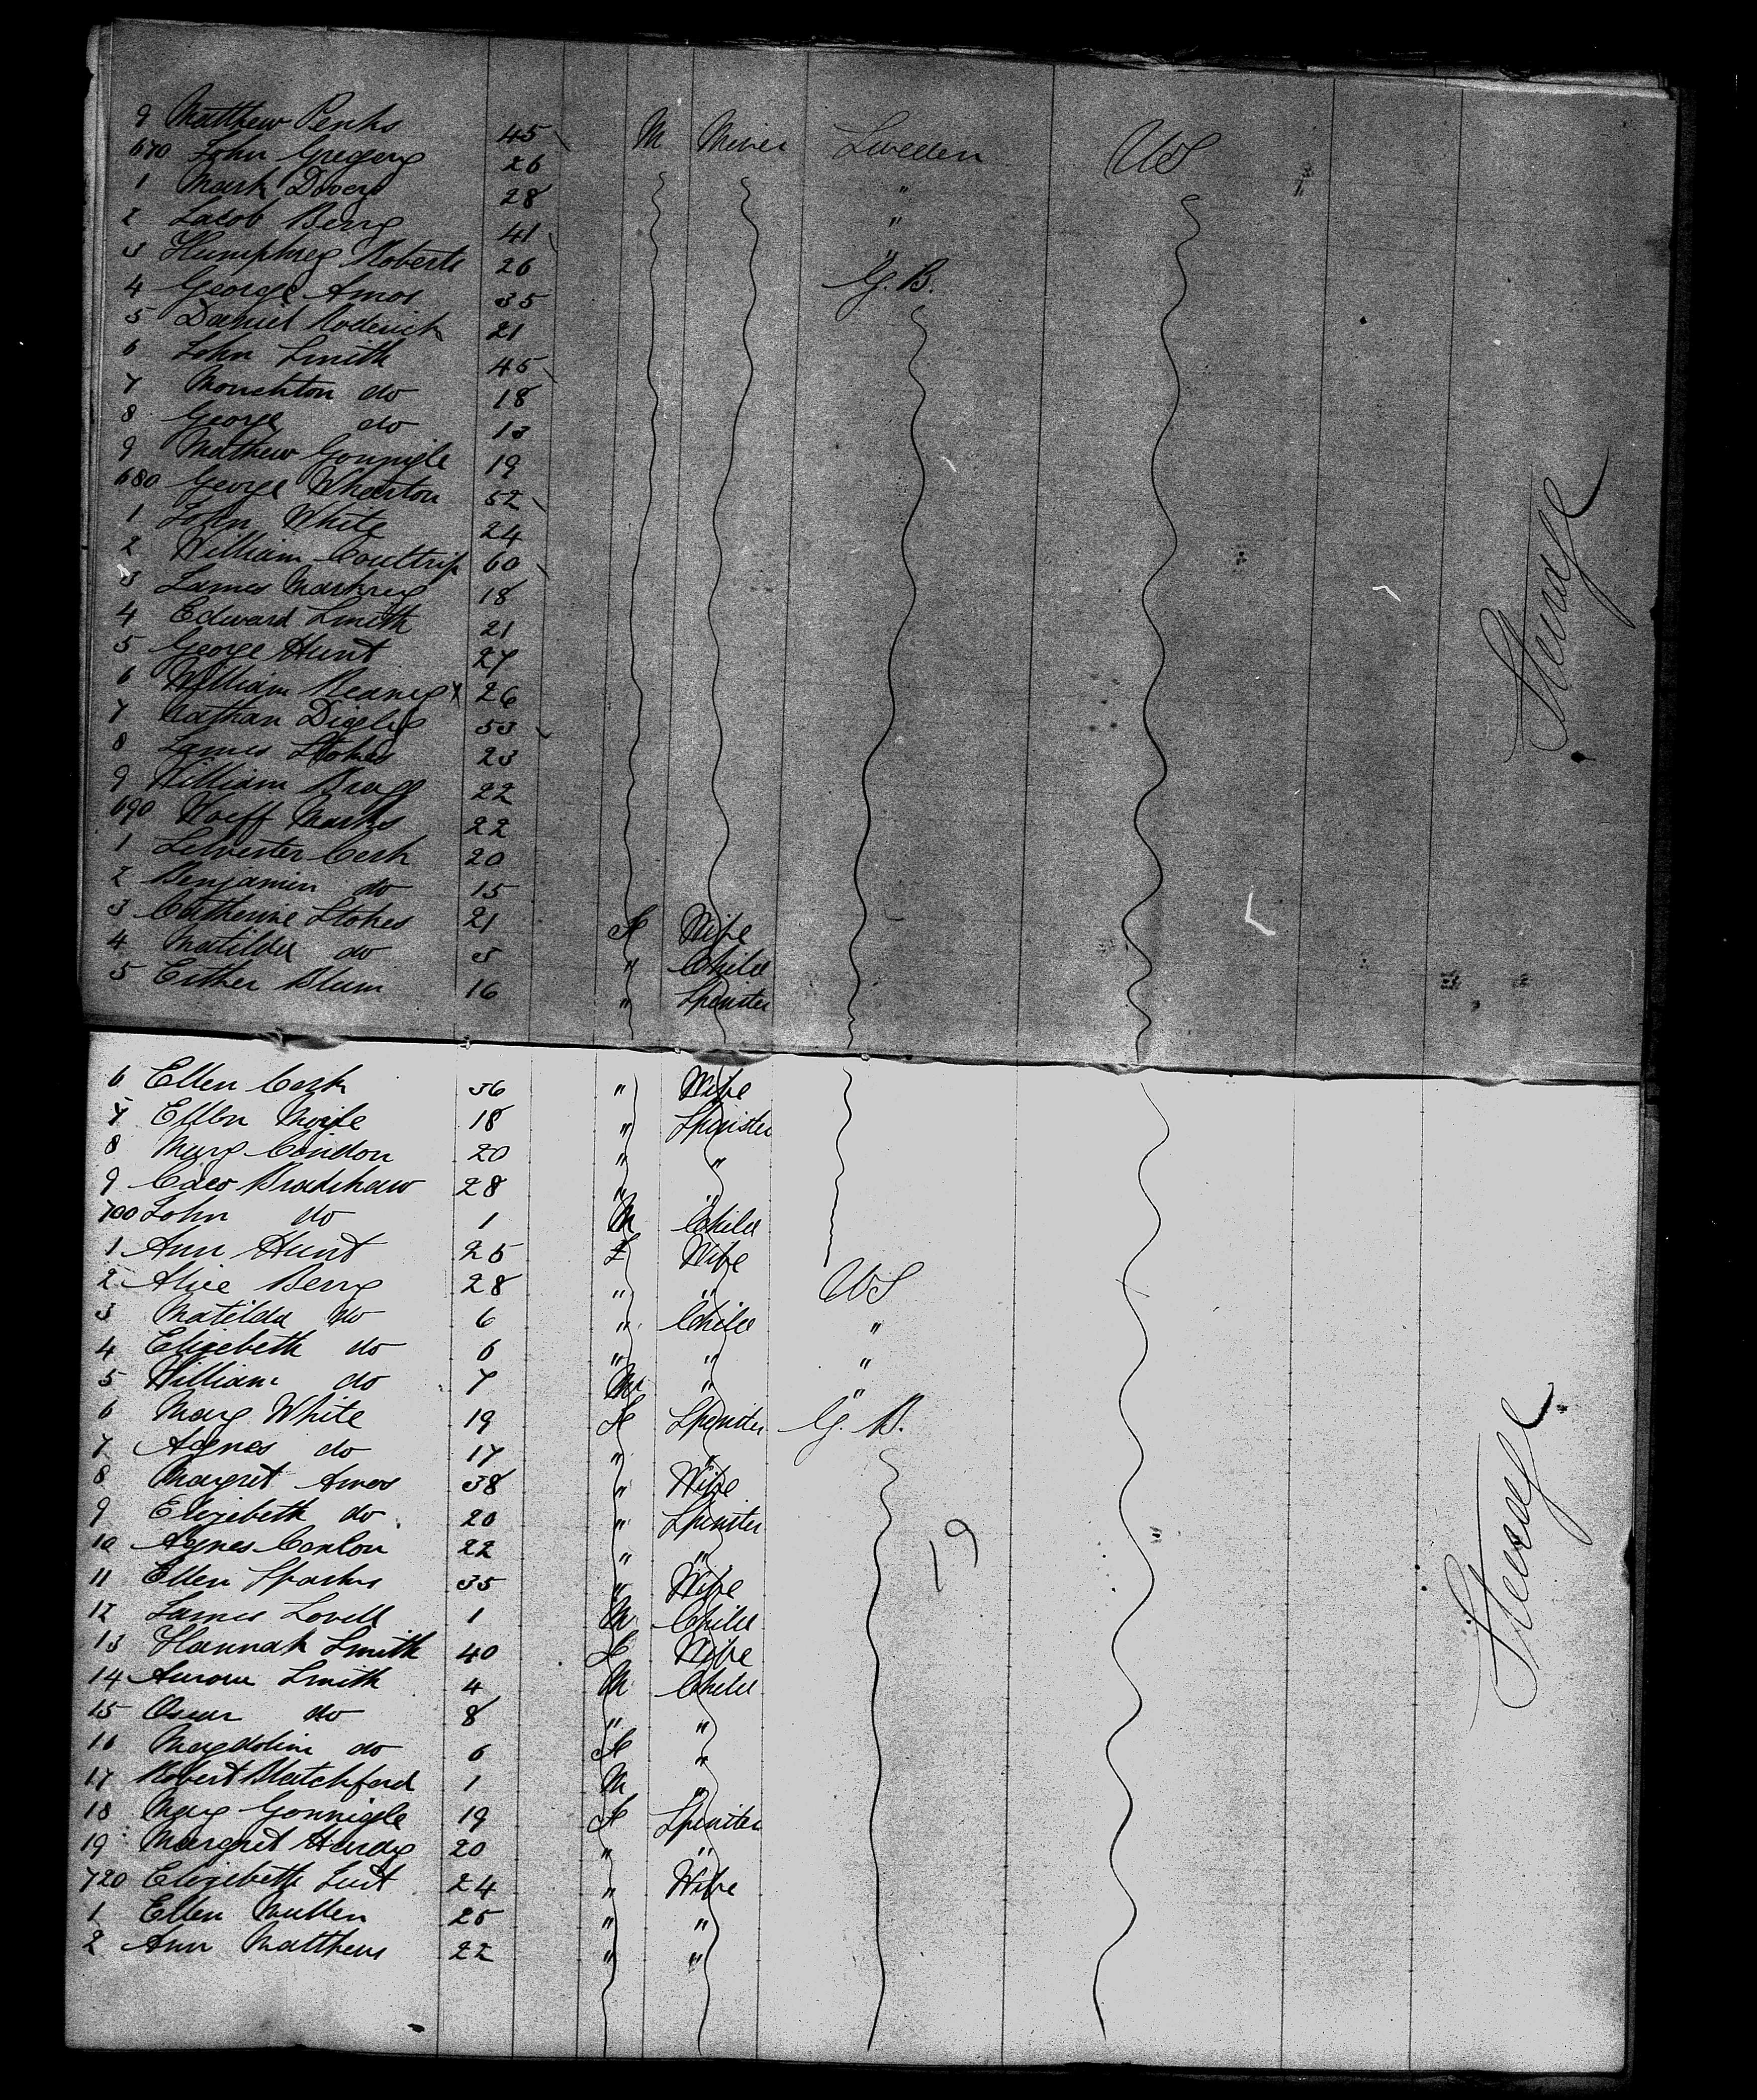 9 Matthew Penks 45 M Miner Sweden US
670 John Gregory 26
1 Mark Dovey 28 "
2 Jacob Berry 41 "
3 Humphrey Roberts 26 "
4 George Amos 35 G. B.
5 Daniel Roderick 21
6 John Smith 45
7 Monckton do 18
8 George do 13
9 Mathew Gonnigle 19
680 George Wharton 52
1 John White 24
2 William Coultrip 60
3 James 18
4 Edward Smith 21
5 George Hunt 27
6 William x 26
7 Nathan 53
8 James Stokes 23
9 William Bragg 22
690 Woeff Marks 22
1 Selvester Cash 20
2 Benjamin do 15
3 Catherine Stokes 21 F Wife
4 Matilda do 3 " Child
5 Esther Blum 16 " Spinster
Steerage
6 Ellen Cash 36 " Wife
7 Ellen 18 " Spinster
8 Mary Condon 20 " "
9 Bradshaw 28 " "
700 John do 1 M Child
1 Ann Hunt 25 F Wife
2 Alice Berry 28 " " US
3 Matilda do 6 " Child "
4 Elizebeth do 6 " " "
5 William do 7 M " "
6 Mary White 19 F Spinster G. B.
7 Agnes do 17 " "
8 Margret Amos 38 " Wife
9 Elizebeth do 20 " Spinster
10 Agnes Conlon 22 " "
11 Ellen Sparks 35 " Wife
12 James Lovell 1 M Child
13 Hannah Smith 40 F Wife
14 Smith 4 M Child
15 Oscar do 8 " "
16 Magdolin do 6 F "
17 Robert Blatchford 1 M "
18 Mary Gonnigle 19 F Spinster
19 Margret Hardy 20 " "
720 Elizebeth 24 " Wife
1 Ellen Mullen 25 " "
2 Ann Matthews 22 " "
19
Steerage